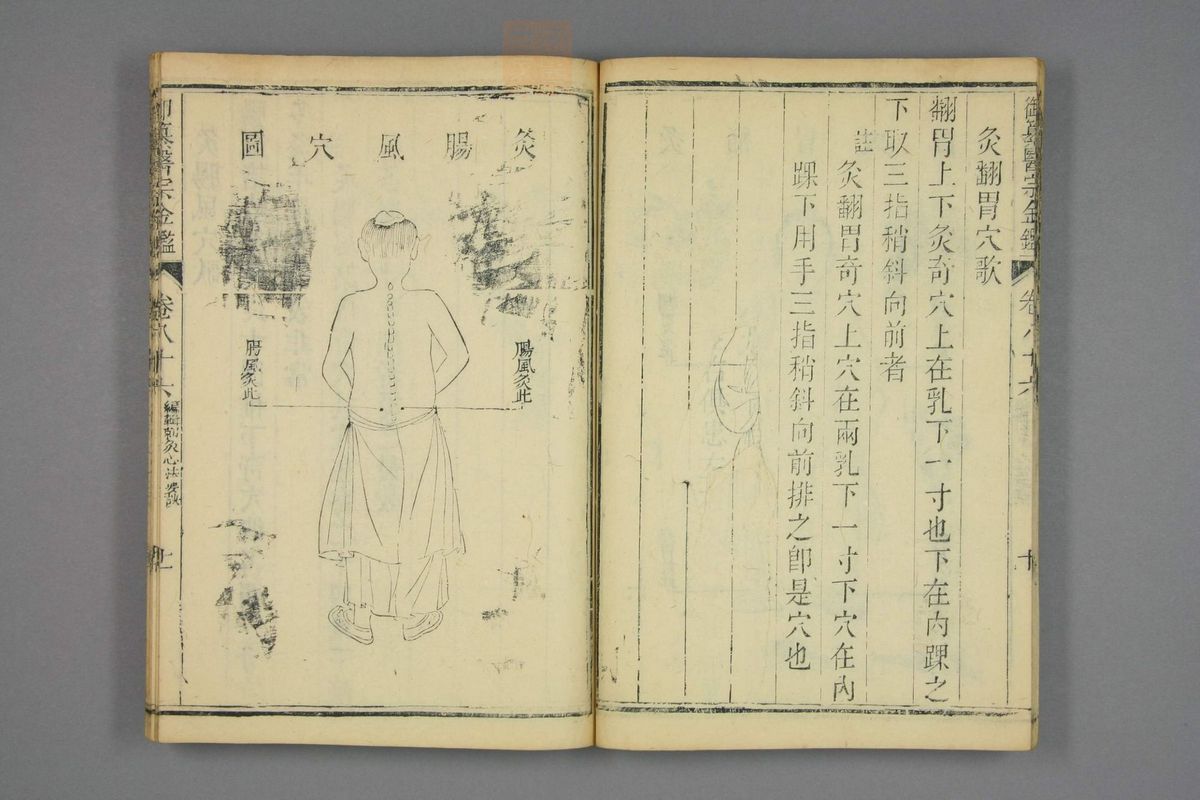 御纂醫宗金鑑 卷八十六 十
灸翻胃穴歌
翻胃上下灸奇穴上在乳下一寸也下在內踝之
下取三指稍斜向前者
註
灸翻胃奇穴上穴在兩乳下一寸下穴在內
踝下用手三指稍斜向前排之卽是穴也
灸腸風穴圖
腸風灸此
腸風灸此
御纂醫宗金鑑 卷八十六 編輯刺灸心法要訣